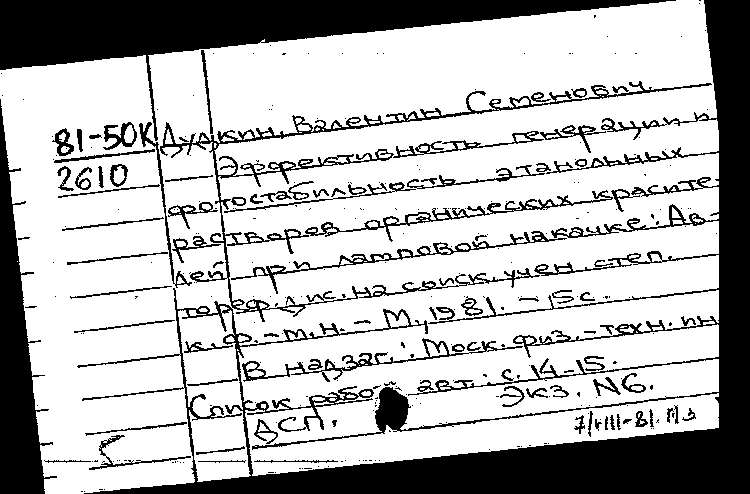 81-50К Дудкин, Валентин Семенович.
2610 Эффективность генерации и
фотостабильность этанольных
растворов органических красите-
лей при ламповой накачке: Ав-
тореф. дис. на соиск. учен. степ.
к.ф.-м.н. - М., 1981. - 15 с.
В надзаг.: Моск. физ.-техн. ин
Список работ авт.: с. 14-15.
ДСП. Экз. N6.
7/VIII-81.